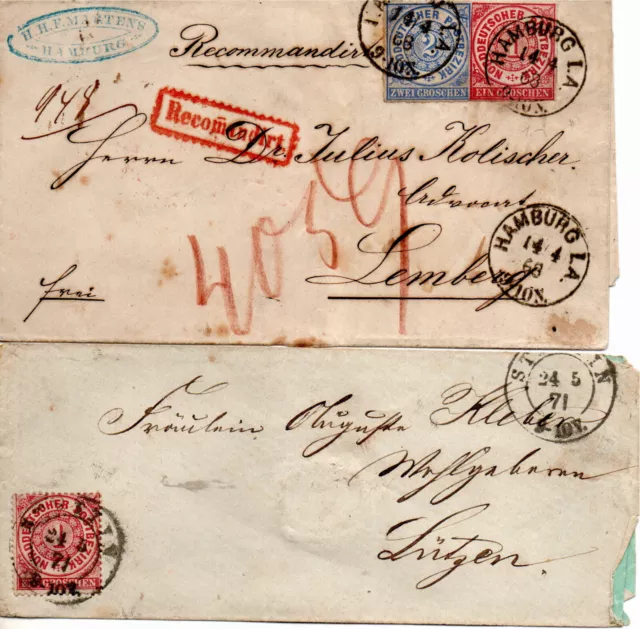 H. H. F. MARTENS
in
HAMBURG.
Recommandirt
NORDDEUTSCHER POSTBEZIRK
ZWEI GROSCHEN
NORDDEUTSCHER POSTBEZIRK
EIN GROSCHEN
HAMBURG I.A.
14 4
68
948
Recommandirt
Herrn Dr. Julius Kolischer.
Advocat
Lemberg
frei
HAMBURG I.A.
14 4
68
9-10N.
24 5
71
Fräulein Auguste
Wohlgeboren
Lützen.
NORDDEUTSCHER POSTBEZIRK
EIN GROSCHEN